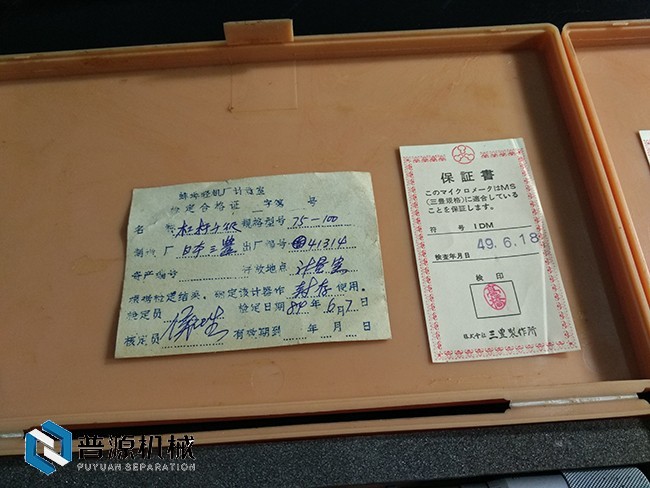 蚌埠轻机厂计量室
检定合格证 字第 号
名 称 杠杆千分尺 规格型号 75-100
制造厂 日本三豐 出厂编号 41314
资产编号 开放地点 计量室
根据检定结果,确定该计器作 封存 使用。
检定员 检定日期 80年6月7日
核定员 有效期到 年 月 日
保証書
このマイクロメータはMS
(三豊規格)に適合している
ことを保証します。
符 号 IDM
49.6.18
検査年月日
検 印
株式会社 三豊製作所
普源机械
PUYUAN SEPARATION